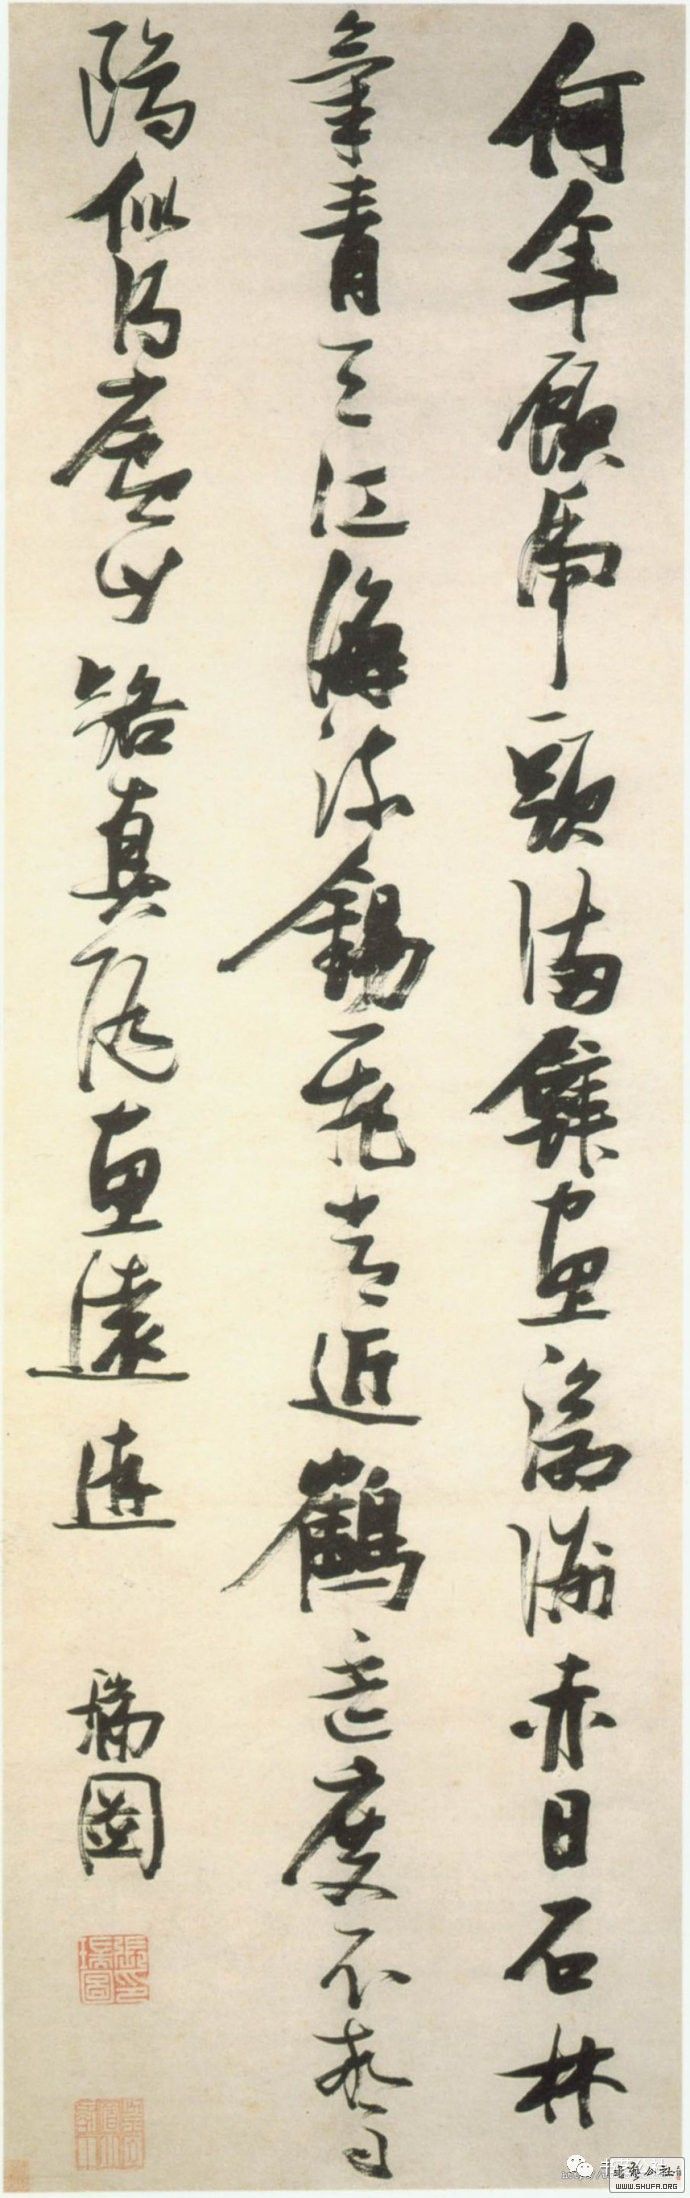 何年顧虎頭滿壁畫滄洲赤日石林
氣青天江海流錫飛常近鶴杯度不驚
鷗似得廬山路真隨惠遠遊
瑞圖
張瑞圖印
WWW.SHUFA.ORG